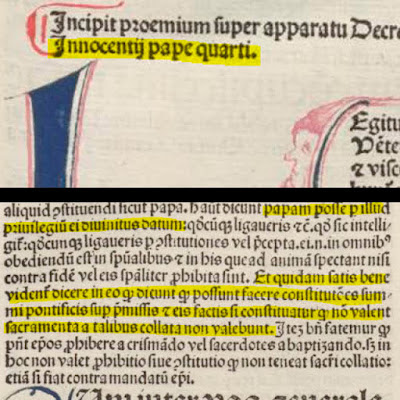 Incipit proemium super apparatu Decre
Innocentij pape quarti.
Egitu
Vēte
⁊ visc
aliquid ꝯstituendi sicut papa. haut dicunt papam posse ꝑ illud
priuilegiū ei diuinitus datum: qd̄cūqꝫ ligaueris ⁊c̄. qd̄ sic intelli-
git᷑: qd̄cunqꝫ ligaueris ꝑ ꝯstitutiones vel p̄cepta. ei. n. in omnibꝰ
obediendū est in spūalibus ⁊ in his que ad animā spectant nisi
contra fidē vel eis spāliter ꝓhibita sint. Et quidam satis bene
vident᷑ dicere in eo ꝙ dicunt ꝙ possunt facere constitutōes sum-
mi pontificis suꝑ p̄missis ⁊ eis factis si constituatur ꝙ nō valent
sacramenta a talibus collata non valebunt. Itē bn̄ fatemur ꝙ
pn̄t ep̄os ꝓhibere a crismādo vel sacerdotes a baptizando. sꝫ in
hoc non valet ꝓhibitio siue ꝯstitutio ꝙ non teneat sacr̄i collatio:
etiā si fiat contra mandatū ep̄i.